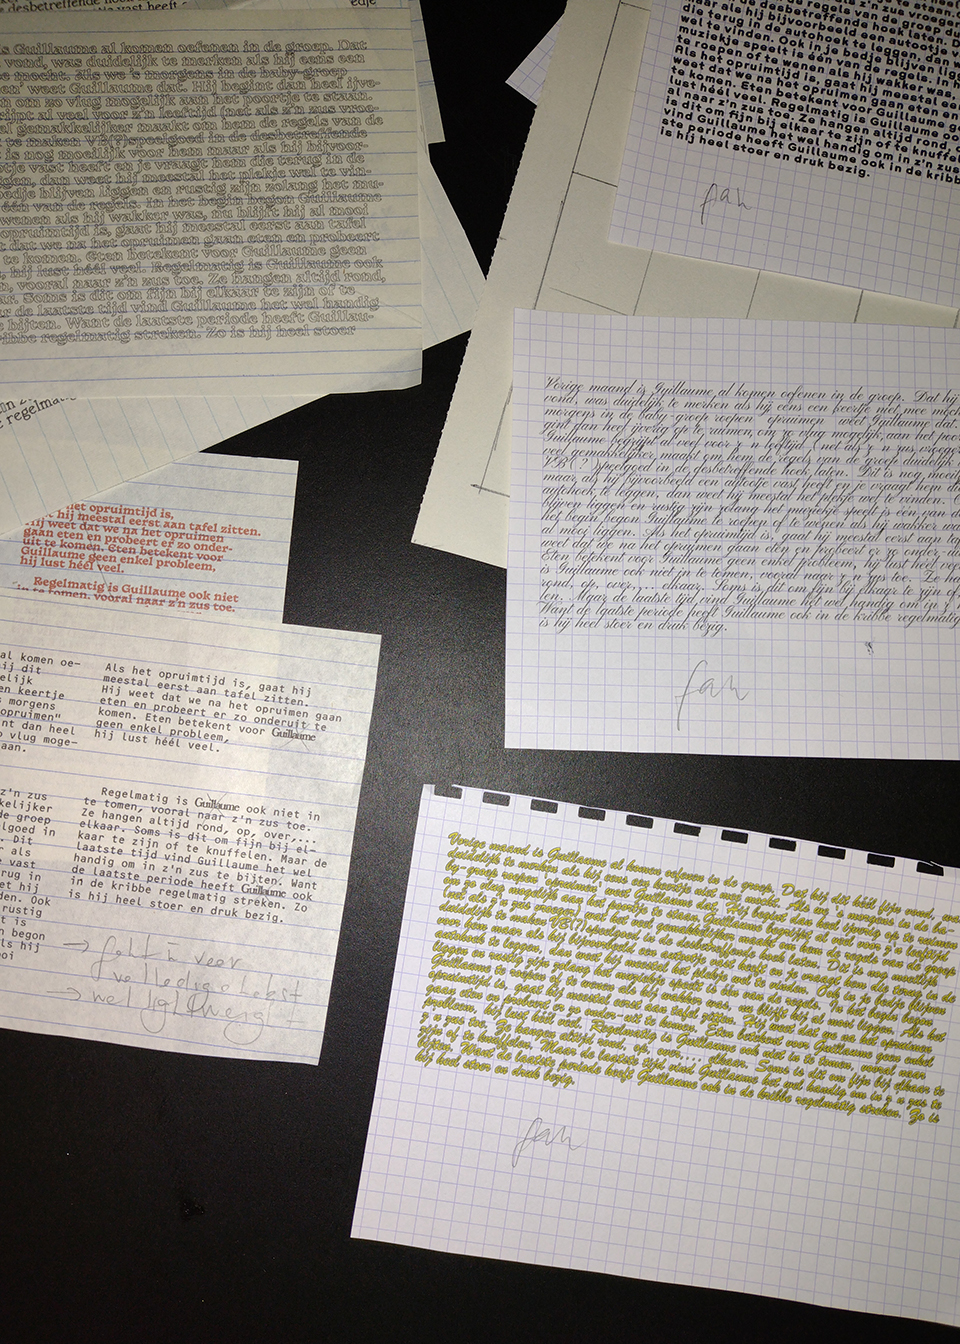 desbetreffende
vast heeft
edje
s Guillaume al komen oefenen in de groep. Dat
vond, was duidelijk te merken als hij eens een
e mocht. Als we 's morgens in de baby-groep
en' weet Guillaume dat. Hij begint dan heel ijve-
n om zo vlug mogelijk aan het poortje te staan.
rijpt al veel voor z'n leeftijd (net als z'n zus vroe-
al gemakkelijker maakt om hem de regels van de
t te maken VB(?)speelgoed in de desbetreffende
is nog moeilijk voor hem maar als hij bijvoor-
tje vast heeft en je vraagt hem die terug in de
gen, dan weet hij meestal het plekje wel te vin-
edje blijven liggen en rustig zijn zolang het mu-
één van de regels. In het begin begon Guillaume
wenen als hij wakker was, nu blijft hij al mooi
opruimtijd is, gaat hij meestal eerst aan tafel
t dat we na het opruimen gaan eten en probeert
te komen. Eten betekent voor Guillaume geen
, hij lust héél veel. Regelmatig is Guillaume ook
n, vooral naar z'n zus toe. Ze hangen altijd rond,
ar. Soms is dit om fijn bij elkaar te zijn of te
r de laatste tijd vind Guillaume het wel handig
bijten. Want de laatste periode heeft Guillau-
ibbe regelmatig streken. Zo is hij heel stoer
regelma
de desbetreffende hoek laten. D
aar als hij bijvoorbeeld een autootje
wel terug in de autohoek te leggen, dan w
wel te vinden. Ook in je bedje blijven ligg
muziekje speelt is één van de regels.
te roepen of te wenen als hij wakker was,
Als het opruimtijd is, gaat hij meestal eers
weet dat we na het opruimen gaan eten en
te komen. Eten betekent voor Guillaume ge
hij lust héél veel. Regelmatig is Guillaume oo
al naar z'n zus toe. Ze hangen altijd rond, o
is dit om fijn bij elkaar te zijn of te knuffele
vind Guillaume het wel handig om in z'n
ste periode heeft Guillaume ook in de kribb
is hij heel stoer en druk bezig.
fian
Vorige maand is Guillaume al komen oefenen in de groep. Dat hij
vond, was duidelijk te merken als hij eens een keertje niet mee moch
morgens in de baby-groep roepen 'opruimen' weet Guillaume dat.
gint dan heel ijverig op te ruimen, om zo vlug mogelijk aan het poor
Guillaume begrijpt al veel voor z'n leeftijd (net als z'n zus vroege
veel gemakkelijker maakt om hem de regels van de groep duidelijk
VB(?)speelgoed in de desbetreffende hoek laten. Dit is nog moeil
maar als hij bijvoorbeeld een autootje vast heeft en je vraagt hem di
autohoek te leggen, dan weet hij meestal het plekje wel te vinden. O
blijven liggen en rustig zijn zolang het muziekje speelt is één van d
het begin begon Guillaume te roepen of te wenen als hij wakker wa
al mooi liggen. Als het opruimtijd is, gaat hij meestal eerst aan taf
weet dat we na het opruimen gaan eten en probeert er zo onder-ui
Eten betekent voor Guillaume geen enkel probleem, hij lust héél ve
is Guillaume ook niet in te tomen, vooral naar z'n zus toe. Ze ha
rond, op, over, .... elkaar. Soms is dit om fijn bij elkaar te zijn of
len. Maar de laatste tijd vind Guillaume het wel handig om in z'n
Want de laatste periode heeft Guillaume ook in de kribbe regelmatig
is hij heel stoer en druk bezig.
fan
het opruimtijd is,
hij meestal eerst aan tafel zitten.
Hij weet dat we na het opruimen
gaan eten en probeert er zo onder-
uit te komen. Eten betekent voor
Guillaume geen enkel probleem,
hij lust héél veel.
Regelmatig is Guillaume ook niet
in te tomen, vooral naar z'n zus toe.
al komen oe-
ij dit
elijk
en keertje
s morgens
opruimen"
nt dan heel
o vlug moge-
aan.
z'n zus
kelijker
de groep
lgoed in
. Dit
r als
e vast
rug in
et hij
den. Ook
rustig
t is
n begon
ls hij
ooi
Als het opruimtijd is, gaat hij
meestal eerst aan tafel zitten.
Hij weet dat we na het opruimen gaan
eten en probeert er zo onderuit te
komen. Eten betekent voor Guillaume
geen enkel probleem,
hij lust héél veel.
Regelmatig is Guillaume ook niet in
te tomen, vooral naar z'n zus toe.
Ze hangen altijd rond, op, over,....
elkaar. Soms is dit om fijn bij el-
kaar te zijn of te knuffelen. Maar de
laatste tijd vind Guillaume het wel
handig om in z'n zus te bijten. Want
de laatste periode heeft Guillaume ook
in de kribbe regelmatig streken. Zo
is hij heel stoer en druk bezig.
→ voor
volledige tekst
→ wel lightweight
Vorige maand is Guillaume al komen oefenen in de groep. Dat hij dit héél fijn vond, was
duidelijk te merken als hij eens een keertje niet mee mocht. Als we 's morgens in de ba-
by-groep roepen 'opruimen' weet Guillaume dat. Hij begint dan heel ijverig op te ruimen
om zo vlug mogelijk aan het poortje te staan. Guillaume begrijpt al veel voor z'n leeftijd
(net als z'n zus vroeger) wat het veel gemakkelijker maakt om hem de regels van de groep
duidelijk te maken VB(?)speelgoed in de desbetreffende hoek laten. Dit is nog moeilijk
voor hem maar als hij bijvoorbeeld een autootje vast heeft en je vraagt hem die terug in de
autohoek te leggen, dan weet hij meestal het plekje wel te vinden. Ook in je bedje blijven
liggen en rustig zijn zolang het muziekje speelt is één van de regels. In het begin begon
Guillaume te roepen of te wenen als hij wakker was, nu blijft hij al mooi liggen. Als het
opruimtijd is, gaat hij meestal eerst aan tafel zitten. Hij weet dat we na het opruimen
gaan eten en probeert er zo onder-uit te komen. Eten betekent voor Guillaume geen enkel
probleem, hij lust héél veel. Regelmatig is Guillaume ook niet in te tomen, vooral naar
z'n zus toe. Ze hangen altijd rond, op, over,.... elkaar. Soms is dit om fijn bij elkaar te
zijn of te knuffelen. Maar de laatste tijd vind Guillaume het wel handig om in z'n zus te
bijten. Want de laatste periode heeft Guillaume ook in de kribbe regelmatig streken. Zo is
hij heel stoer en druk bezig.
fan